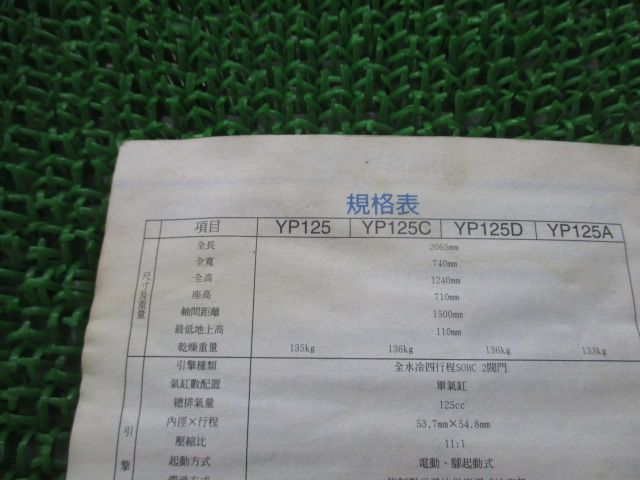 規格表
項目 YP125 YP125C YP125D YP125A
尺寸及重量
全長 2065mm
全寬 740mm
全高 1240mm
座高 710mm
軸間距離 1500mm
最低地上高 110mm
乾燥重量 135kg 136kg 136kg 133kg
引擎
引擎種類 全水冷四行程SOHC 2閥門
氣缸數配置 單氣缸
總排氣量 125cc
內徑×行程 53.7mm×54.8mm
壓縮比 11:1
起動方式 電動、腳起動式